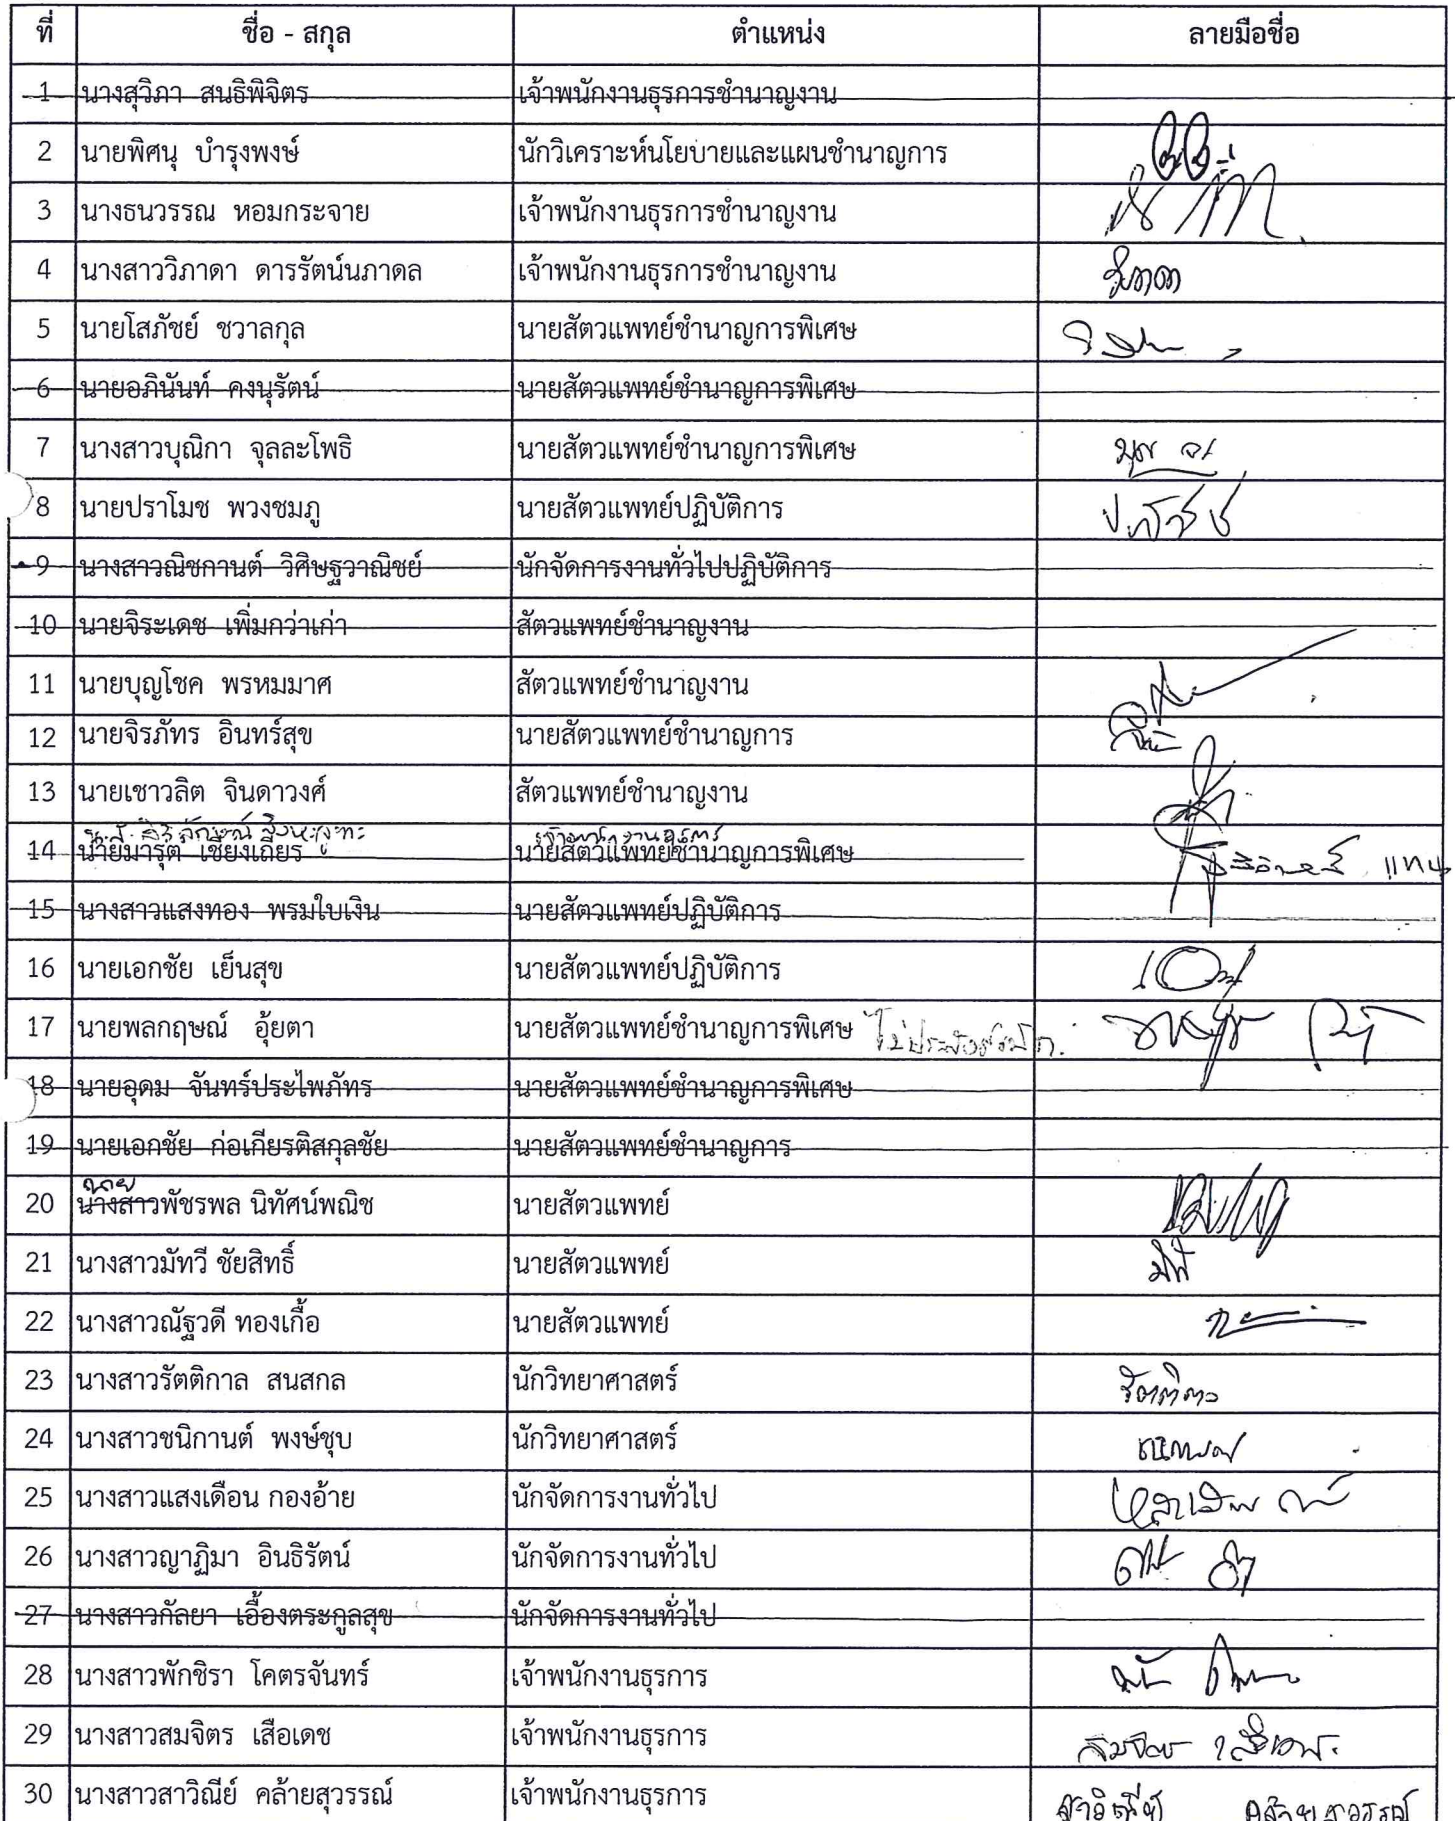 ที่ ชื่อ - สกุล ตำแหน่ง ลายมือชื่อ
1 นางสุวิภา สนธิพิจิตร เจ้าพนักงานธุรการชำนาญงาน
2 นายพิศนุ บำรุงพงษ์ นักวิเคราะห์นโยบายและแผนชำนาญการ
3 นางธนวรรณ หอมกระจาย เจ้าพนักงานธุรการชำนาญงาน
4 นางสาววิภาดา ดารรัตน์นภาดล เจ้าพนักงานธุรการชำนาญงาน วิภาดา
5 นายโสภัชย์ ชวาลกุล นายสัตวแพทย์ชำนาญการพิเศษ
6 นายอภินันท์ คงนุรัตน์ นายสัตวแพทย์ชำนาญการพิเศษ
7 นางสาวบุณิกา จุลละโพธิ นายสัตวแพทย์ชำนาญการพิเศษ
8 นายปราโมช พวงชมภู นายสัตวแพทย์ปฏิบัติการ
9 นางสาวณิชกานต์ วิศิษฐวาณิชย์ นักจัดการงานทั่วไปปฏิบัติการ
10 นายจิระเดช เพิ่มกว่าเก่า สัตวแพทย์ชำนาญงาน
11 นายบุญโชค พรหมมาศ สัตวแพทย์ชำนาญงาน
12 นายจิรภัทร อินทร์สุข นายสัตวแพทย์ชำนาญการ
13 นายเชาวลิต จินดาวงศ์ สัตวแพทย์ชำนาญงาน
14 นายมารุต เชียงเถียร นายสัตวแพทย์ชำนาญการพิเศษ แทน
15 นางสาวแสงทอง พรมใบเงิน นายสัตวแพทย์ปฏิบัติการ
16 นายเอกชัย เย็นสุข นายสัตวแพทย์ปฏิบัติการ
17 นายพลกฤษณ์ อุ้ยตา นายสัตวแพทย์ชำนาญการพิเศษ
18 นายอุดม จันทร์ประไพภัทร นายสัตวแพทย์ชำนาญการพิเศษ
19 นายเอกชัย ก่อเกียรติสกุลชัย นายสัตวแพทย์ชำนาญการ
นาย
20 นางสาวพัชรพล นิทัศน์พณิช นายสัตวแพทย์
21 นางสาวมัทวี ชัยสิทธิ์ นายสัตวแพทย์
22 นางสาวณัฐวดี ทองเกื้อ นายสัตวแพทย์
23 นางสาวรัตติกาล สนสกล นักวิทยาศาสตร์
24 นางสาวชนิกานต์ พงษ์ชุบ นักวิทยาศาสตร์
25 นางสาวแสงเดือน กองอ้าย นักจัดการงานทั่วไป
26 นางสาวญาฏิมา อินธิรัตน์ นักจัดการงานทั่วไป
27 นางสาวกัลยา เอื้องตระกูลสุข นักจัดการงานทั่วไป
28 นางสาวพักชิรา โคตรจันทร์ เจ้าพนักงานธุรการ
29 นางสาวสมจิตร เสือเดช เจ้าพนักงานธุรการ สมจิตร เสือเดช
30 นางสาวสาวิณีย์ คล้ายสุวรรณ์ เจ้าพนักงานธุรการ สาวิณีย์ คล้ายสุวรรณ์